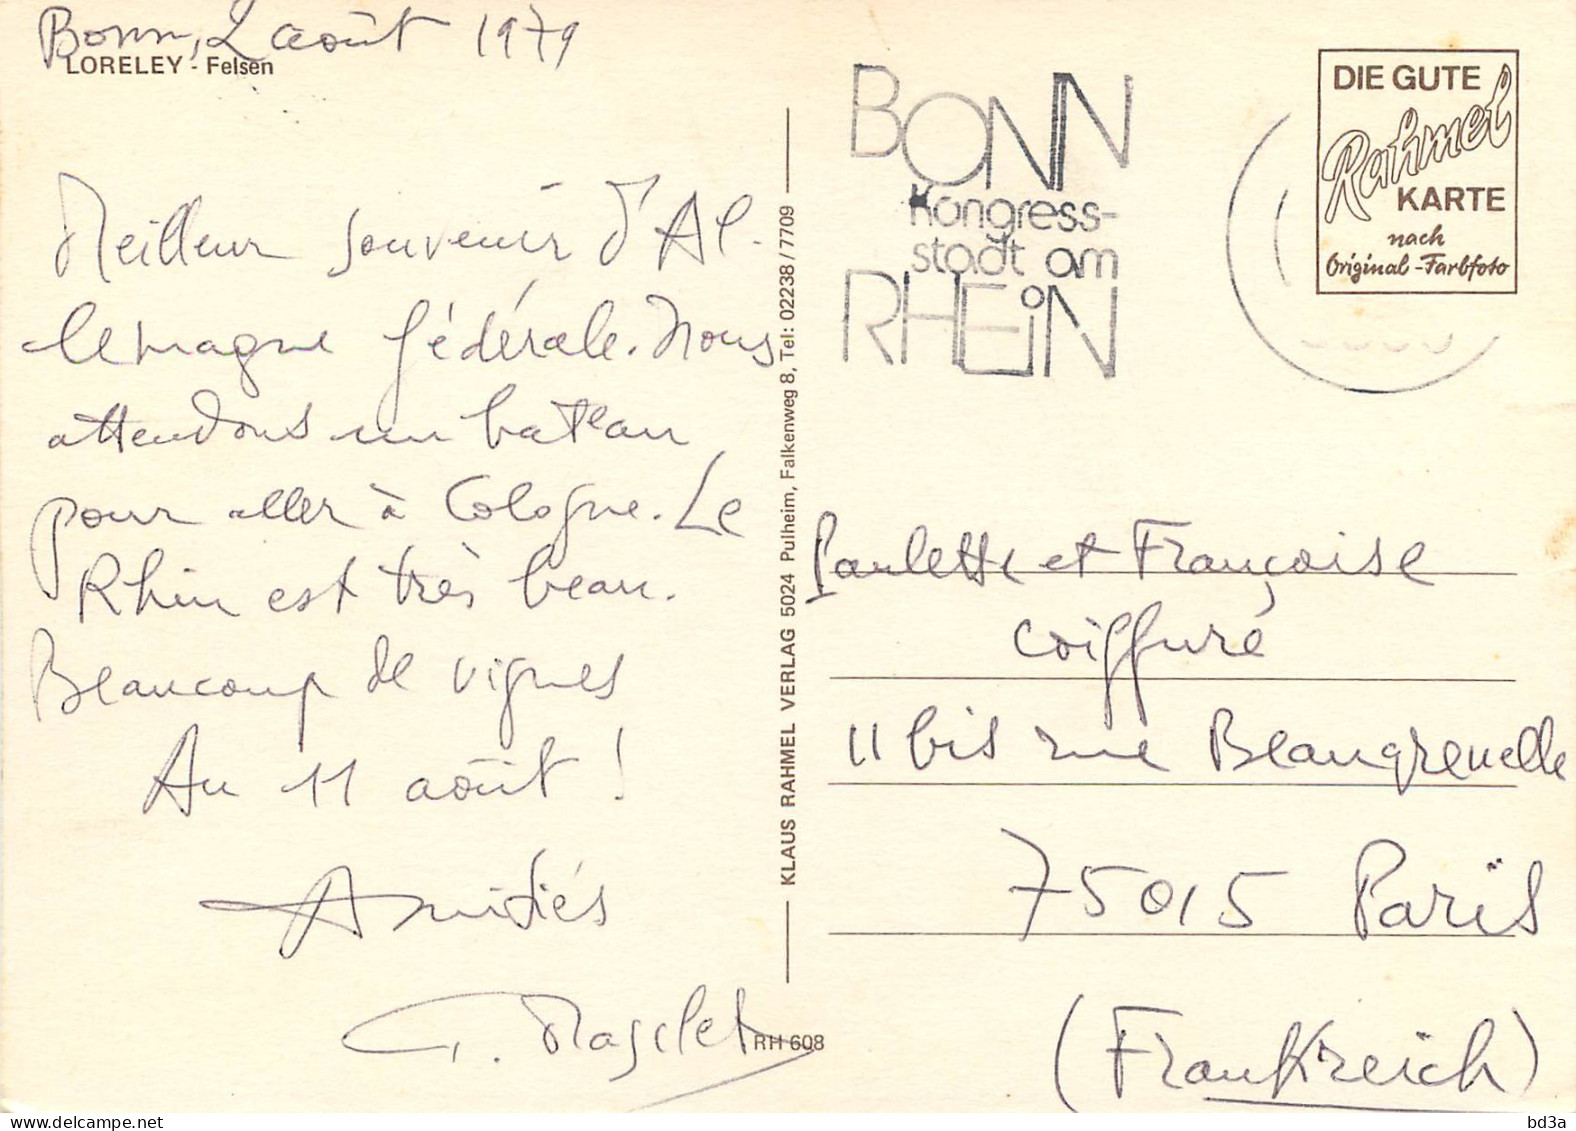 Bonn, 2 août 1979
LORELEY - Felsen
Meilleur souvenir d'Al-
lemagne fédérale. Nous
attendons un bateau
pour aller à Cologne. Le
Rhin est très beau.
Beaucoup de vignes
Au 11 août !
Amitiés
KLAUS RAHMEL VERLAG 5024 Pulheim, Falkenweg 8, Tel: 02238/7709
RH 608
BONN
Kongress-
stadt am
RHEiN
DIE GUTE
Rahmel
KARTE
nach
Original-Farbfoto
Paulette et Françoise
coiffure
11 bis rue Beaugrenelle
75015 Paris
(Frankreich)
bd3a